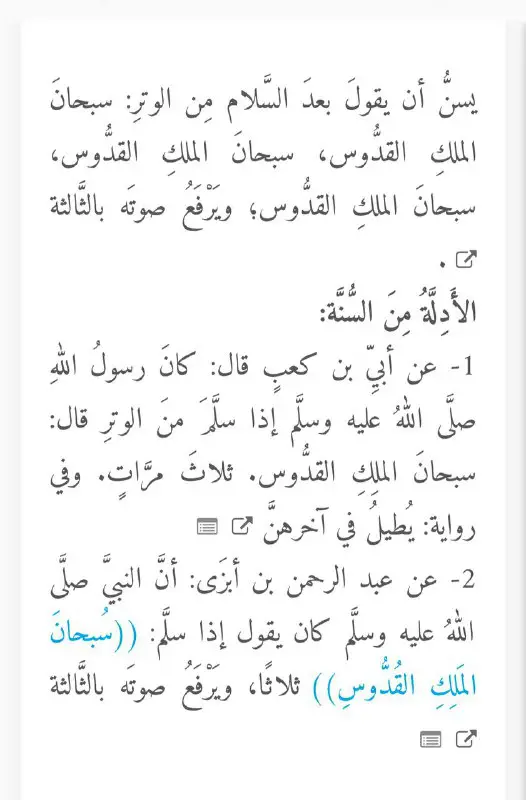 يسنُّ أن يقولَ بعدَ السَّلام مِن الوترِ: سبحانَ
الملكِ القدُّوس، سبحانَ الملكِ القدُّوس،
سبحانَ الملكِ القدُّوس؛ ويَرْفَعُ صوتَه بالثَّالثة
.
الأَدِلَّةُ مِنَ السُّنَّة:
1- عن أبيِّ بن كعبٍ قال: كانَ رسولُ اللهِ
صلَّى اللهُ عليه وسلَّم إذا سلَّمَ منَ الوترِ قال:
سبحانَ الملِكِ القدُّوس. ثلاثَ مرَّاتٍ. وفي
رواية: يُطيلُ في آخرهنَّ
2- عن عبد الرحمن بن أبزَى: أنَّ النبيَّ صلَّى
اللهُ عليه وسلَّم كان يقول إذا سلَّم: ((سُبحانَ
المَلِكِ القُدُّوسِ)) ثلاثًا، ويَرْفَعُ صوتَه بالثَّالثة